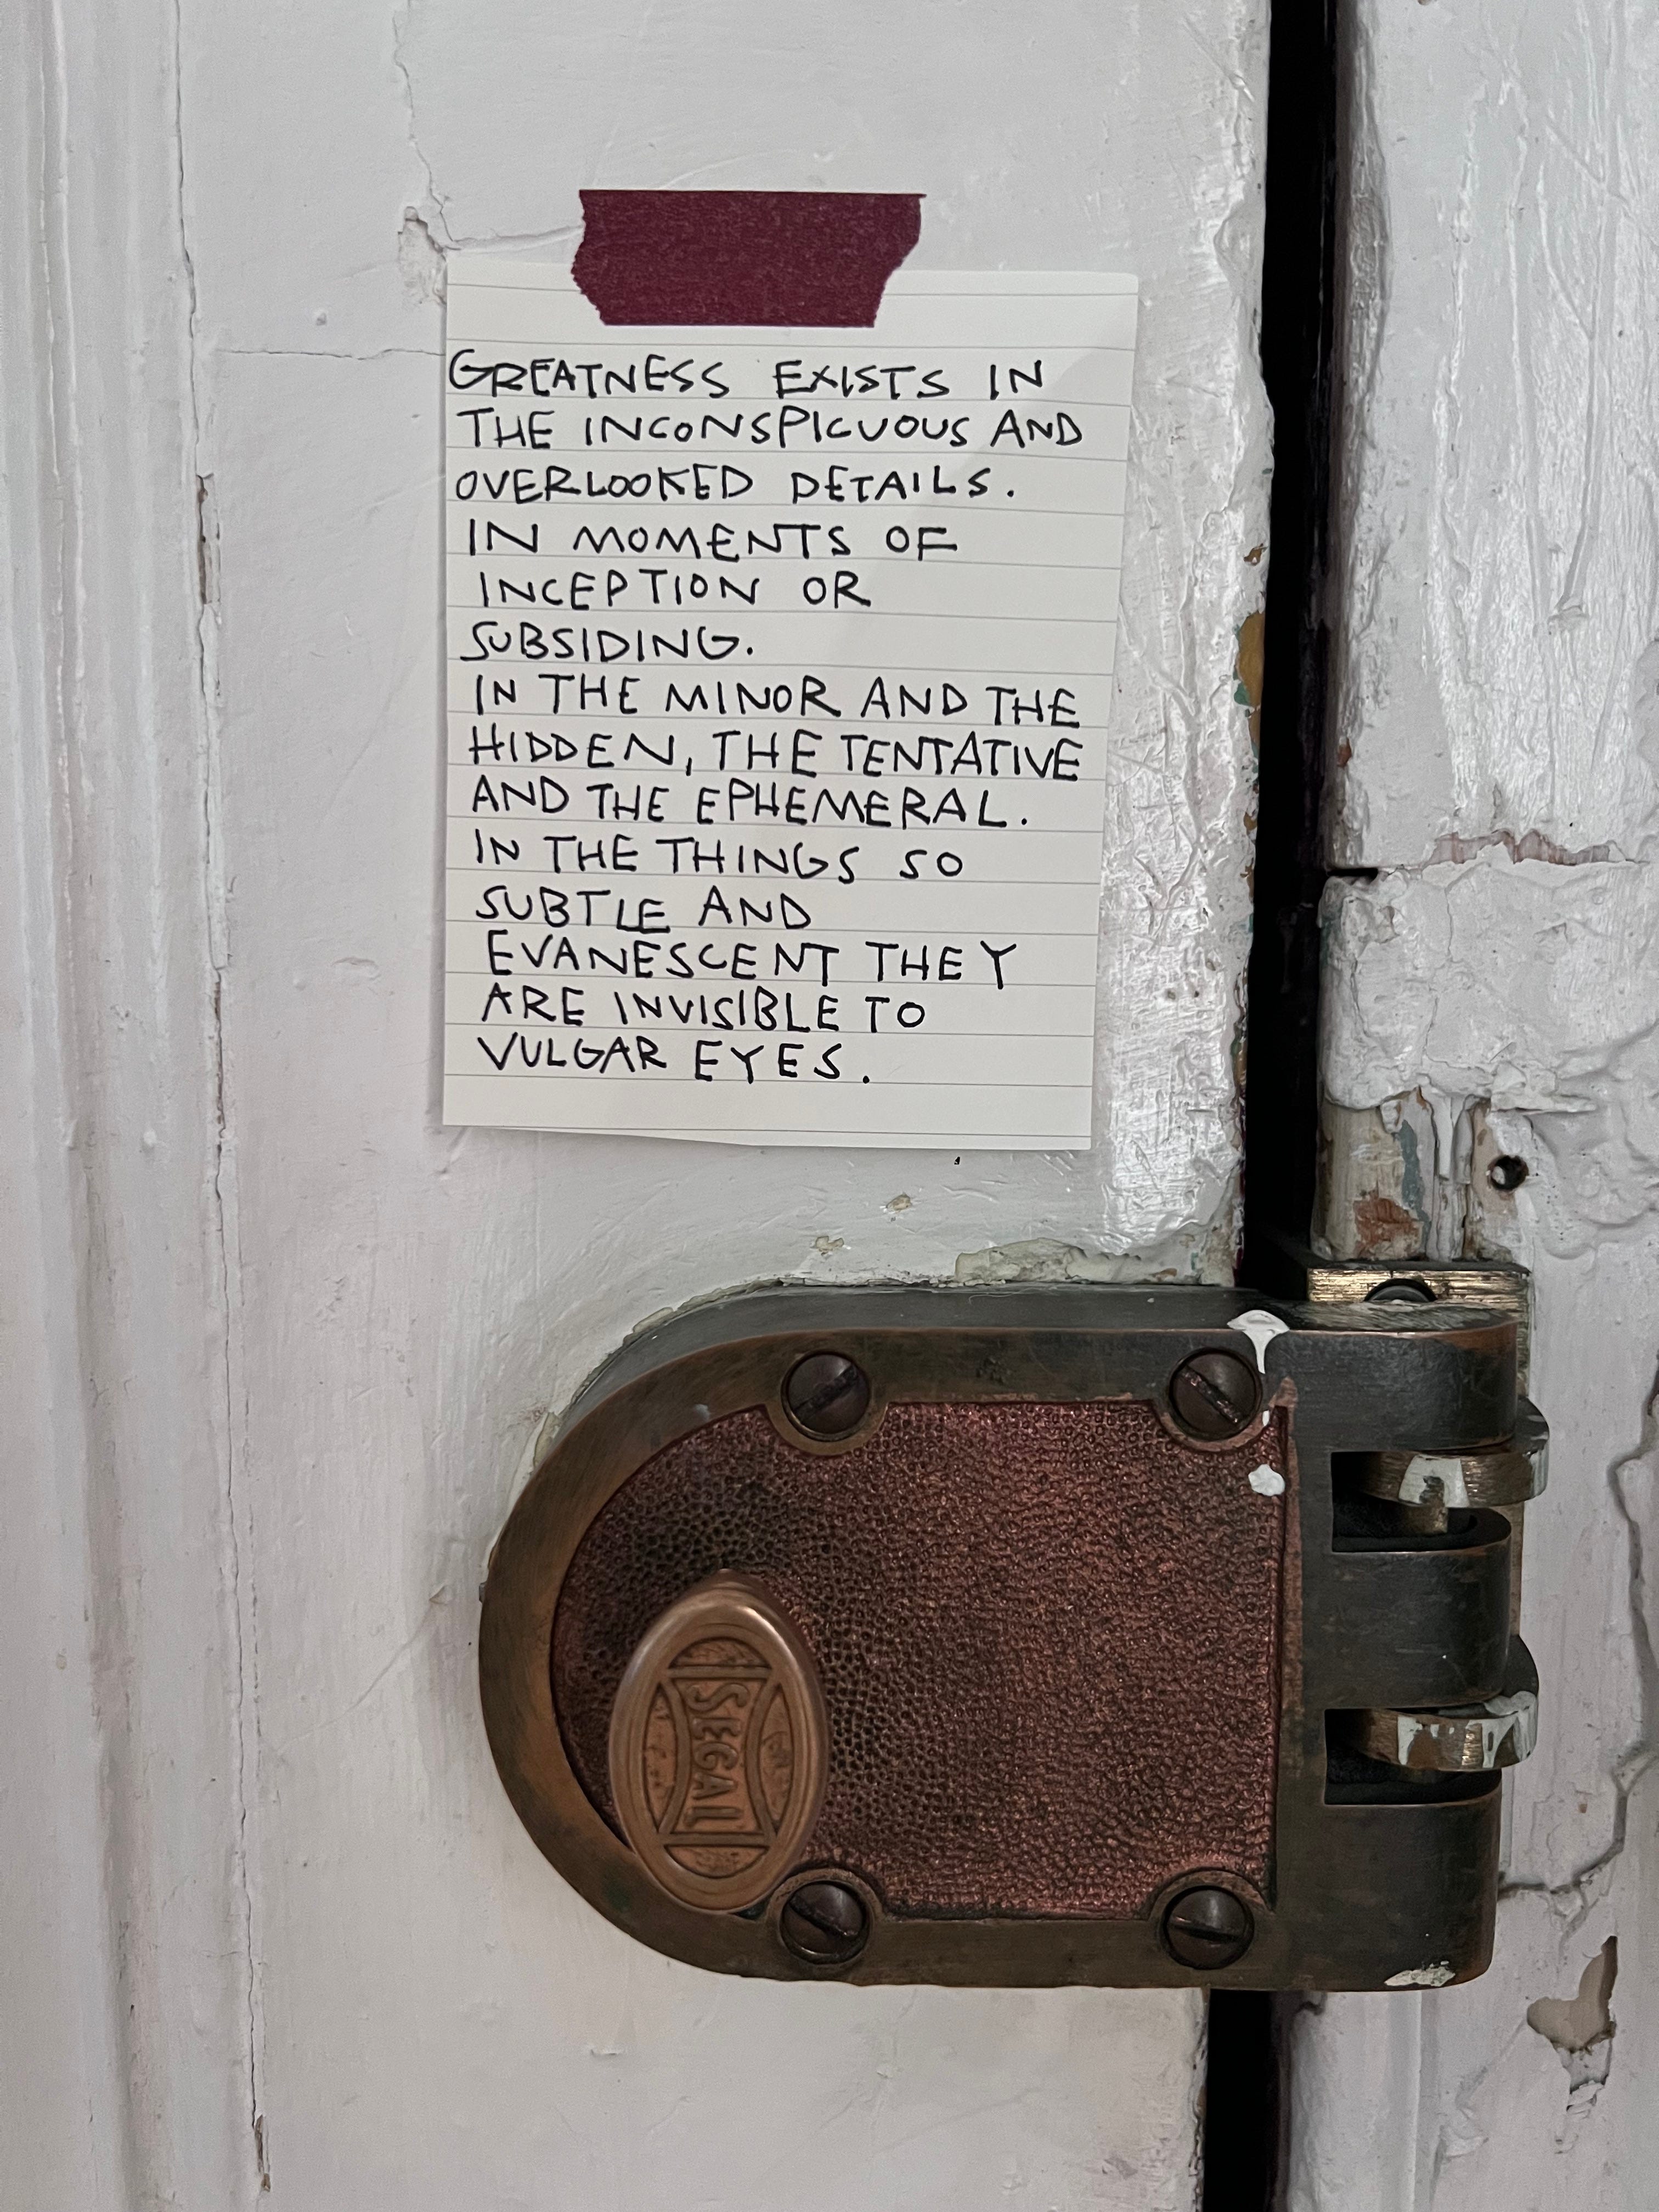 GREATNESS EXISTS IN
THE INCONSPICUOUS AND
OVERLOOKED DETAILS.
IN MOMENTS OF
INCEPTION OR
SUBSIDING.
IN THE MINOR AND THE
HIDDEN, THE TENTATIVE
AND THE EPHEMERAL.
IN THE THINGS SO
SUBTLE AND
EVANESCENT THEY
ARE INVISIBLE TO
VULGAR EYES.
SEGAL